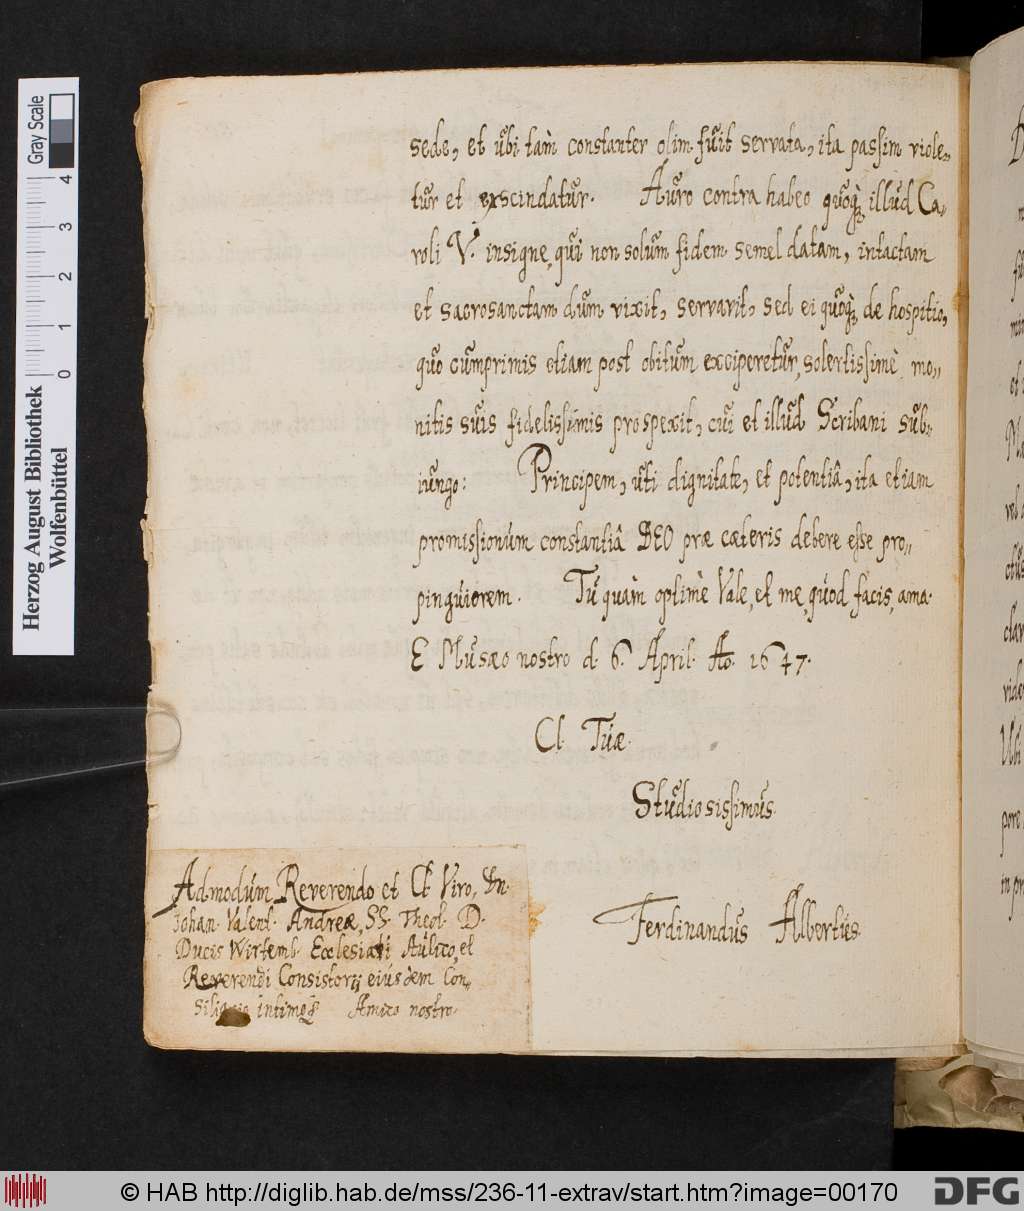 sede, et ubi tàm constanter olim fuit servata, ita passim viole,,
tur et exscindatur. Auro contra habeo quoq illud Ca,,
roli V. insigne, qui non solum fidem semel datam, intactam
et sacrosanctam dum vixit, servavit, sed ei quoq de hospitio,
quo cumprimis etiam post obitum exciperetur, solertissimè mo,,
nitis suis fidelissimis prospexit, cui et illud Scribani sub,,
iungo: Principem, uti dignitate, et potentiâ, ita etiam
promissionum constantiâ DEO præ cæteris debere esse pro,,
pinquiorem. Tu quàm optimè Vale, et me, quod facis, ama.
E Musæo nostro d. 6. April. Ao. 1647.
Cl. Tuæ.
Studiosissimus.
Ferdinandus Albertus
Admodum Reverendo et Cl. Viro, Dn.
Johan. Valent. Andreæ, SS. Theol. D.
Ducis Wirtemb. Ecclesiasti Aulico, et
Reverendi Consistorij eiusdem Con,,
intimoq Amico nostro.
Herzog August Bibliothek
Wolfenbüttel
Gray Scale
0 1 2 3 4
© HAB http://diglib.hab.de/mss/236-11-extrav/start.htm?image=00170
DFG